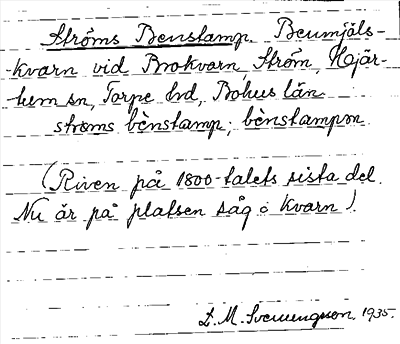 Ströms Benstamp. Benmjöls-
-kvarn vid Brokvarn, Ström, Hjär-
tum sn, Torpe hd, Bohus län.
ströms bènstamp; bènstampən
(Riven på 1800-talets sista del.
Nu är på platsen såg o kvarn).
L. M. Svenungsson, 1935.